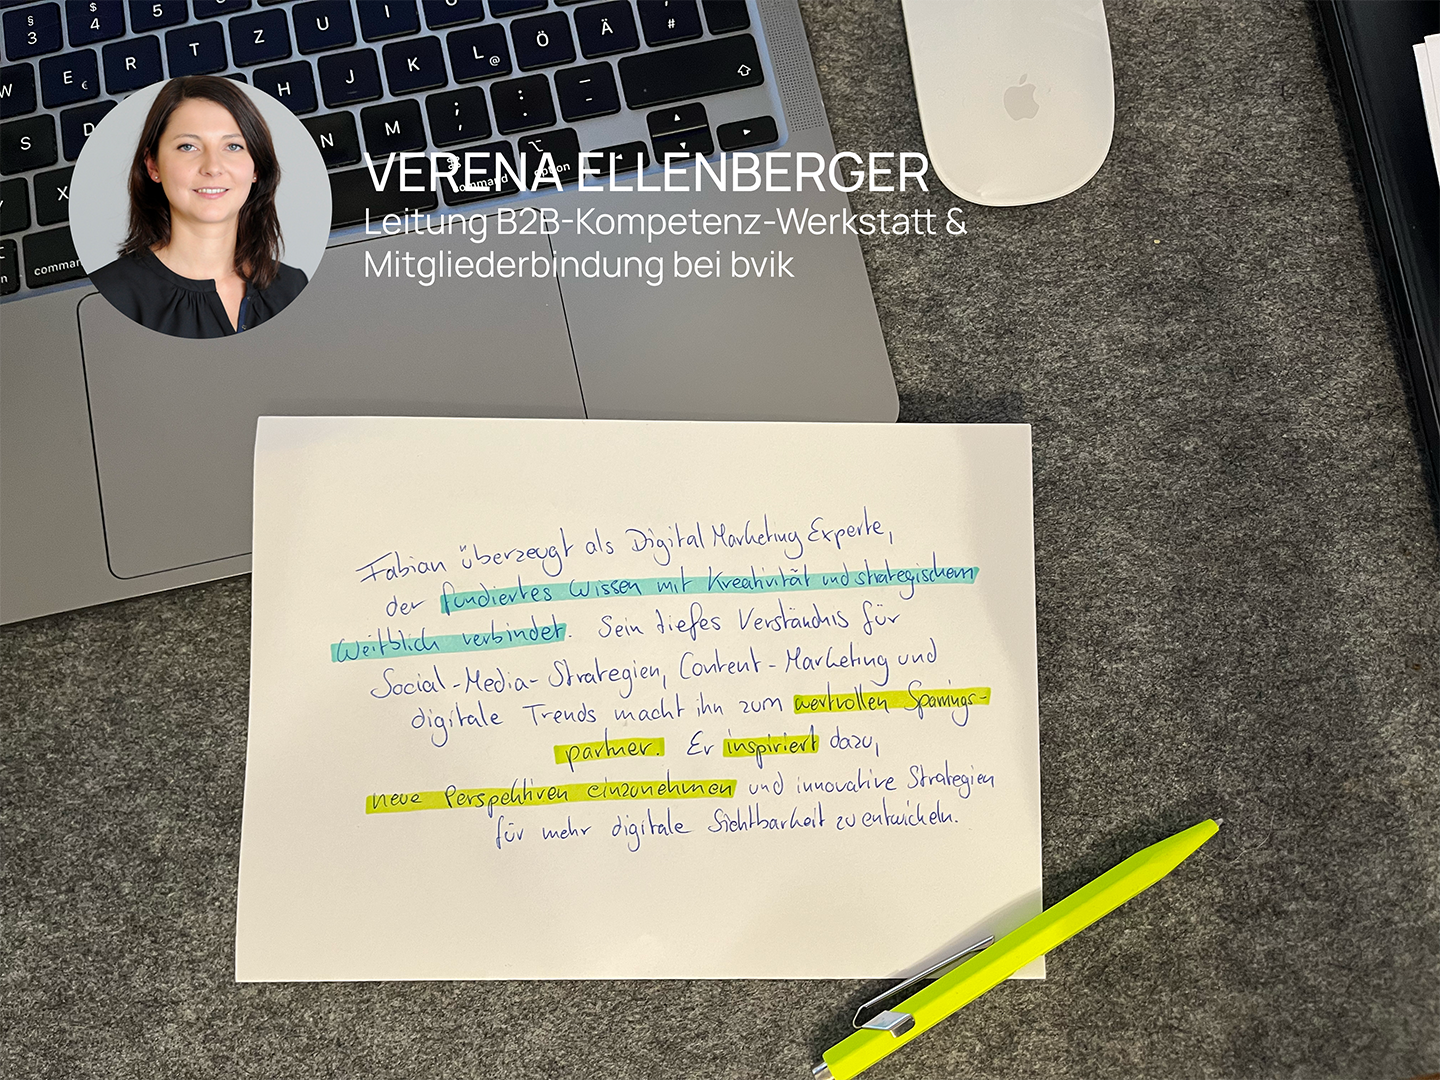 § 3
$ 4
5
U
I
O
P
Ü
* + ~
' #
W
E €
R
T
Z
H
J
K
L @
Ö
Ä
S
D
N
M
; ,
: .
_ -
X
Y
⌘ command
⌥ option
command
VERENA ELLENBERGER
Leitung B2B-Kompetenz-Werkstatt &
Mitgliederbindung bei bvik
Fabian überzeugt als Digital Marketing Experte,
der fundiertes Wissen mit Kreativität und strategischem
Weitblich verbindet. Sein tiefes Verständnis für
Social-Media-Strategien, Content-Marketing und
digitale Trends macht ihn zum wertvollen Sparrings-
partner. Er inspiriert dazu,
neue Perspektiven einzunehmen und innovative Strategien
für mehr digitale Sichtbarkeit zu entwickeln.